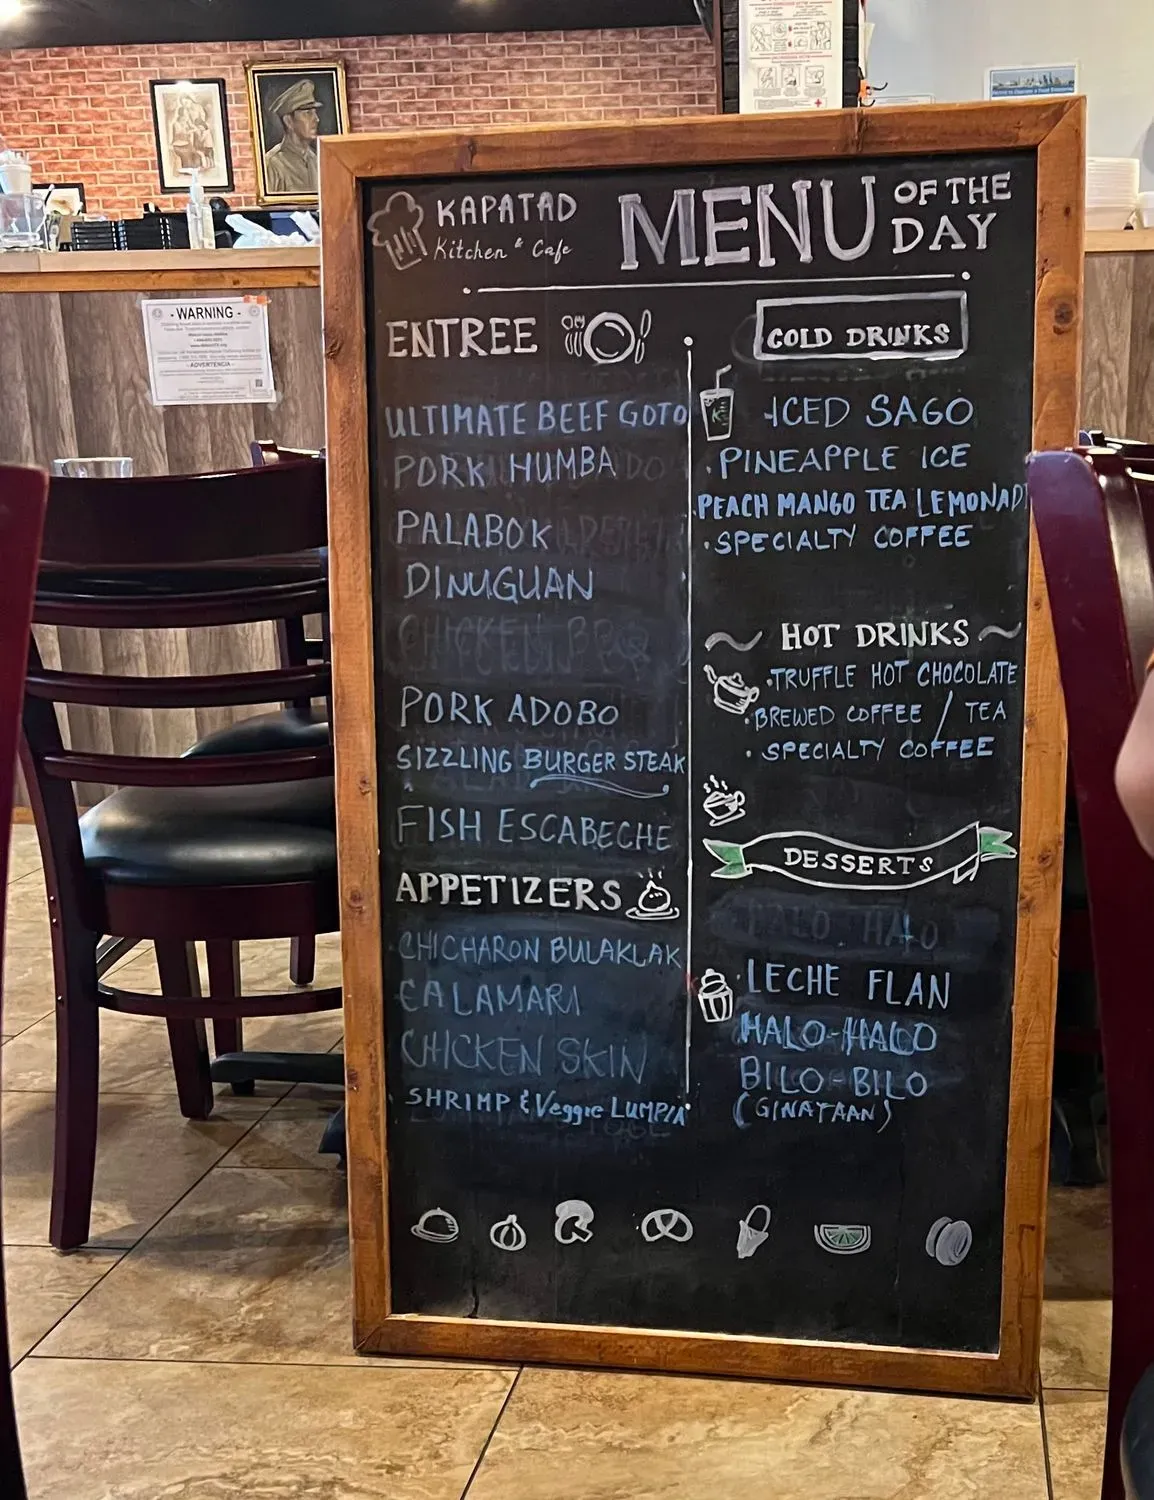 KAPATAD
Kitchen & Cafe
MENU OF THE DAY
ENTREE
ULTIMATE BEEF GOTO
PORK HUMBA
PALABOK
DINUGUAN
CHICKEN BBQ
PORK ADOBO
SIZZLING BURGER STEAK
FISH ESCABECHE
APPETIZERS
CHICHARON BULAKLAK
CALAMARI
CHICKEN SKIN
SHRIMP & Veggie LUMPIA
COLD DRINKS
ICED SAGO
PINEAPPLE ICE
PEACH MANGO TEA LEMONAD
SPECIALTY COFFEE
HOT DRINKS
TRUFFLE HOT CHOCOLATE
BREWED COFFEE / TEA
SPECIALTY COFFEE
DESSERTS
HALO HALO
LECHE FLAN
HALO-HALO
BILO-BILO
(GINATAAN)
- WARNING -
- ADVERTENCIA -